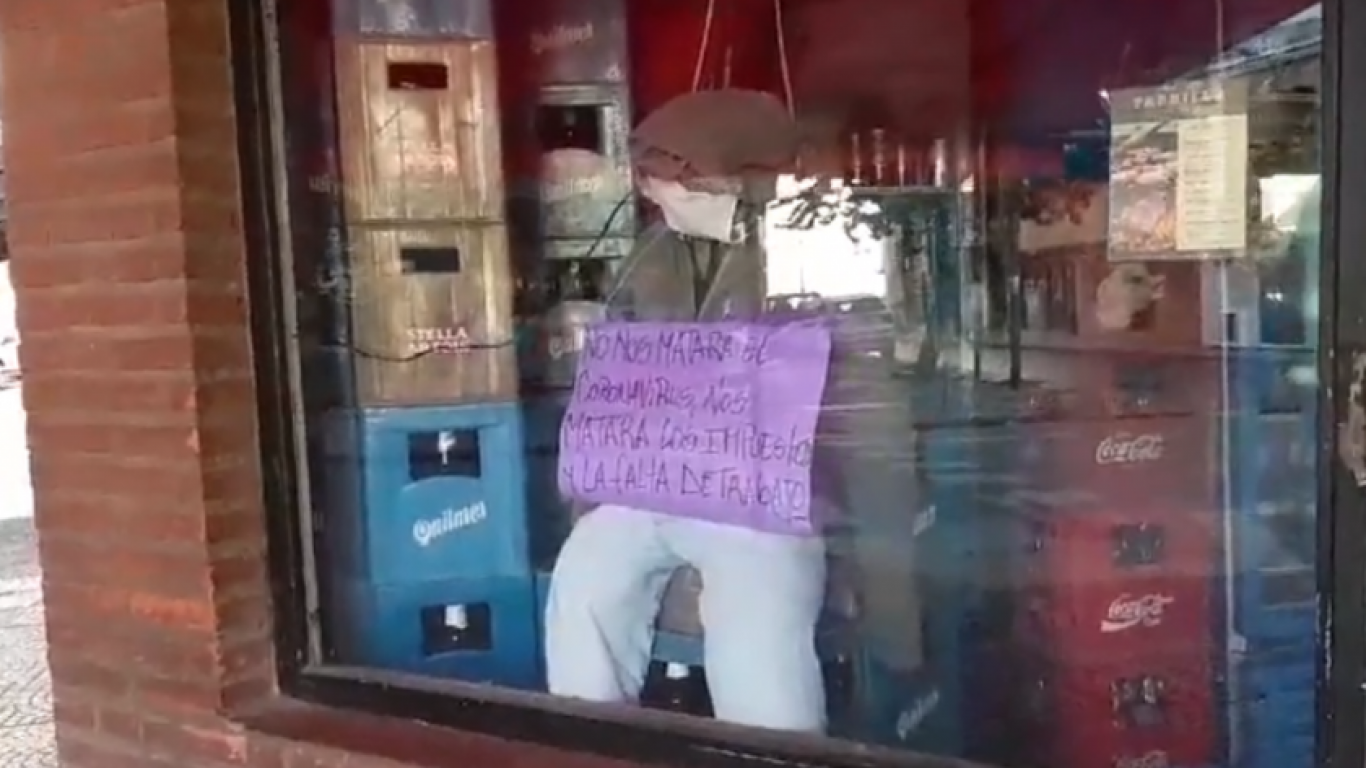 Quilmes
PARRILLA
STELLA
ARTOIS
NO NOS MATARA EL
CORONAVIRUS, NOS
MATARA LOS IMPUESTOS
Y LA FALTA DE TRABAJO
Coca-Cola
Quilmes
Coca-Cola